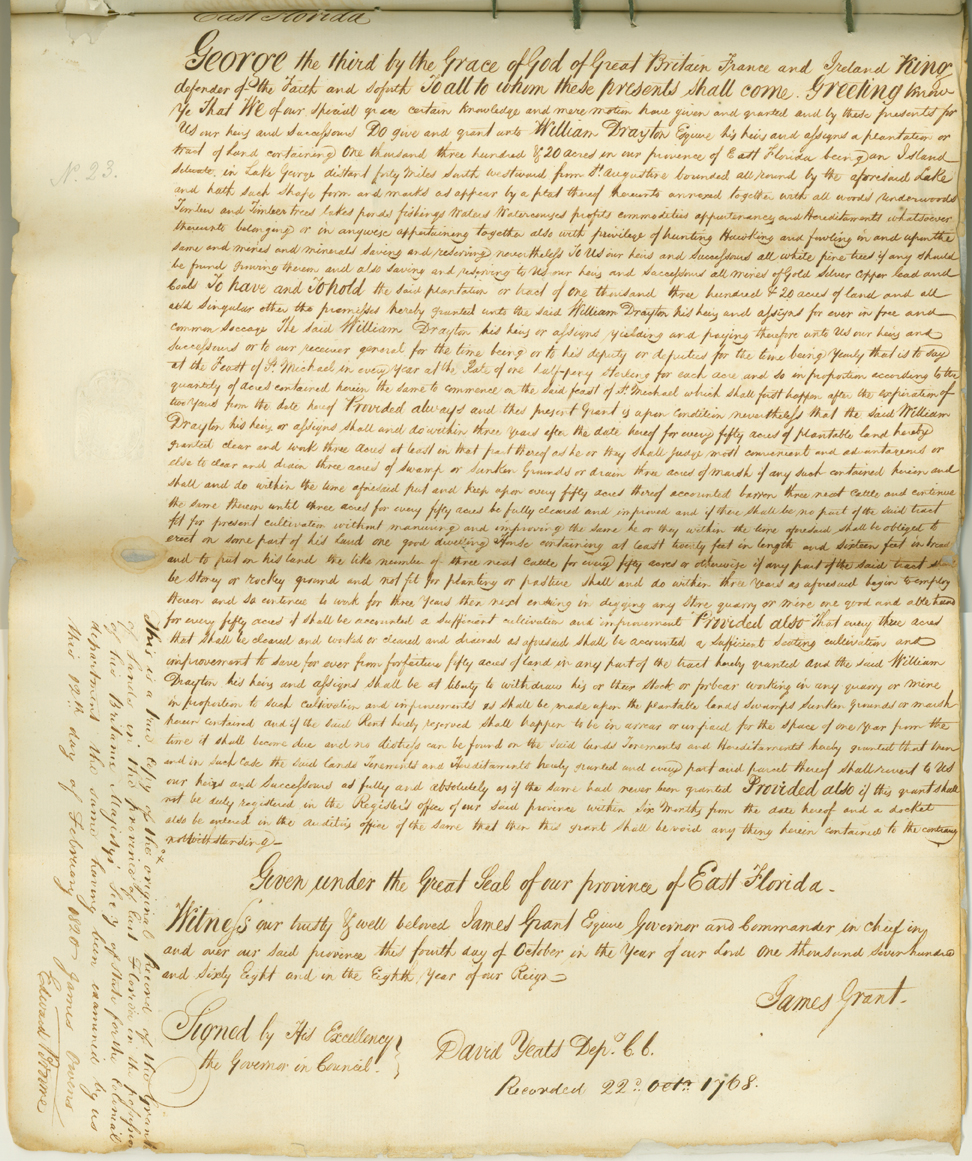 East Florida
George the third by the Grace of God of Great Britain France and Ireland King
defender of the Faith and soforth To all to whom these presents shall come Greeting Know
Ye That We of our special grace certain knowledge and mere motion have given and granted and by these presents for
Us our heirs and Successours Do give and grant unto William Drayton Esquire his heirs and assigns a plantation or
tract of land containing One thousand three hundred & 20 acres in our province of East Florida being an Island
Situate in Lake George distant forty Miles South westward from St. Augustine bounded all round by the aforesaid Lake
and hath such shape form and marks as appear by a plat thereof hereunto annexed together with all woods Underwoods
Timbers and Timber trees lakes ponds fishings Waters Watercourses profits commodities appurtenances and Hereditaments whatsoever
thereunto belonging or in anywise appertaining together also with privilege of hunting Hawking and fowling in and upon the
same and mines and minerals saving and reserving nevertheless To Us our heirs and Successours all white pine trees if any should
be found growing thereon and also saving and reserving to Us our heirs and Successours all mines of Gold Silver Copper Lead and
Coals To have and To hold the said plantation or tract of One thousand three hundred & 20 acres of land and all
and singular other the premises hereby granted unto the said William Drayton his heirs and assigns for ever in free and
common Soccage The said William Drayton his heirs or assigns yielding and paying therefore unto Us our heirs and
Successours or to our receiver general for the time being or to his deputy or deputies for the time being Yearly that is to say
at the Feast of St. Michael in every Year at the Rate of one half penny sterling for each acre and so in proportion according to the
quantity of acres contained herein the same to commence on the said feast of St. Michael which shall first happen after the expiration of
two Years from the date hereof Provided always and this present Grant is upon condition nevertheless that the said William
Drayton his heirs or assigns shall and do within three Years after the date hereof for every fifty acres of plantable land hereby
granted clear and work three Acres at least in that part thereof as he or they shall judge most convenient and advantageous or
else to clear and drain three acres of swamp or sunken Grounds or drain three acres of marsh if any such contained herein and
shall and do within the time aforesaid put and keep upon every fifty acres thereof accounted barren three neat cattle and continue
the same thereon until three acres for every fifty acres be fully cleared and improved and if there shall be no part of the said tract
fit for present cultivation without manuring and improving the same he or they within the time aforesaid shall be obliged to
erect on some part of his land one good dwelling House containing at least twenty feet in length and sixteen feet in
and to put on his land the like number of three neat cattle for every fifty acres or otherwise if any part of the said tract
be stoney or rockey ground and not fit for planting or pasture shall and do within three Years as aforesaid begin to employ
thereon and so continue to work for three Years then next ensuing in digging any stone quarry or mine one good and able hand
for every fifty acres it shall be accounted a sufficient cultivation and improvement Provided also That every three acres
that shall be cleared and worked or cleared and drained as aforesaid shall be accounted a sufficient seating cultivation and
improvement to save for ever from forfeiture fifty acres of land in any part of the tract hereby granted and the said William
Drayton his heirs and assigns shall be at liberty to withdraw his or their stock or forbear working in any quarry or mine
in proportion to such cultivation and improvements as shall be made upon the plantable lands Swamps Sunken Grounds or marsh
herein contained and if the said Rent hereby reserved shall happen to be in arrear or unpaid for the space of one Year from the
time it shall become due and no distress can be found on the said lands Tenements and Hereditaments hereby granted that then
and in such Case the said lands Tenements and Hereditaments hereby granted and every part and parcel thereof shall revert to Us
our heirs and Successours as fully and absolutely as if the same had never been granted Provided also if this grant shall
not be duly registered in the Register's office of our said province within Six Months from the date hereof and a docket
also be entered in the Auditors office of the same that then this grant shall be void any thing herein contained to the contrary
notwithstanding
Given under the Great Seal of our province of East Florida.
Witness our trusty & well beloved James Grant Esquire Governor and Commander in chief in
and over our said province this fourth day of October in the Year of our Lord One thousand Seven hundred
and Sixty Eight and in the Eighth Year of our Reign
James Grant.
Signed by His Excellency
the Governor in Council.
David Yeats Depy. C. C.
Recorded 22d. Octr. 1768.
No. 23.
This is a true copy of the original Record of the Grant
of Lands in the province of East Florida in the
of his Britannic Majesty's Secy of State for the Colonial
department the same having been examined by us
this 12th day of February 1820
James Owens
Edward